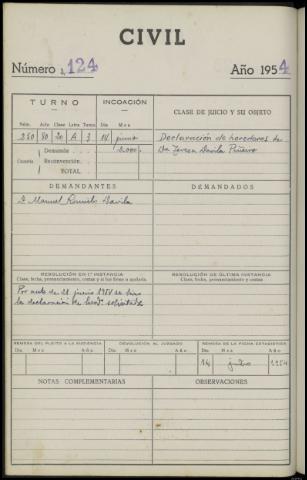 CIVIL
Número 1,124
Año 1954
TURNO
INCOACIÓN
CLASE DE JUICIO Y SU OBJETO
Núm. Año Clase Letra Turno Día Mes
250 80 20 A 3 14 junio
Declaración de herederos de
Da Teresa Davila Piñeiro
Cuantía
Demanda 2.000
Reconvención
TOTAL
DEMANDANTES
DEMANDADOS
D. Manuel Davila
RESOLUCIÓN EN 1.ª INSTANCIA
Clase, fecha, pronunciamiento, costas y si fue firme o apelada.
RESOLUCIÓN DE ÚLTIMA INSTANCIA
Clase, fecha, pronunciamiento y costas
Por auto de 21 junio 1954 se hizo
la declaración de hered.ª solicitada
REMESA DEL PLEITO A LA AUDIENCIA
DEVOLUCIÓN AL JUZGADO
REMESA DE LA FICHA ESTADÍSTICA
Día Mes Año
Día Mes Año
Día Mes Año
14 julio 1954
NOTAS COMPLEMENTARIAS
OBSERVACIONES